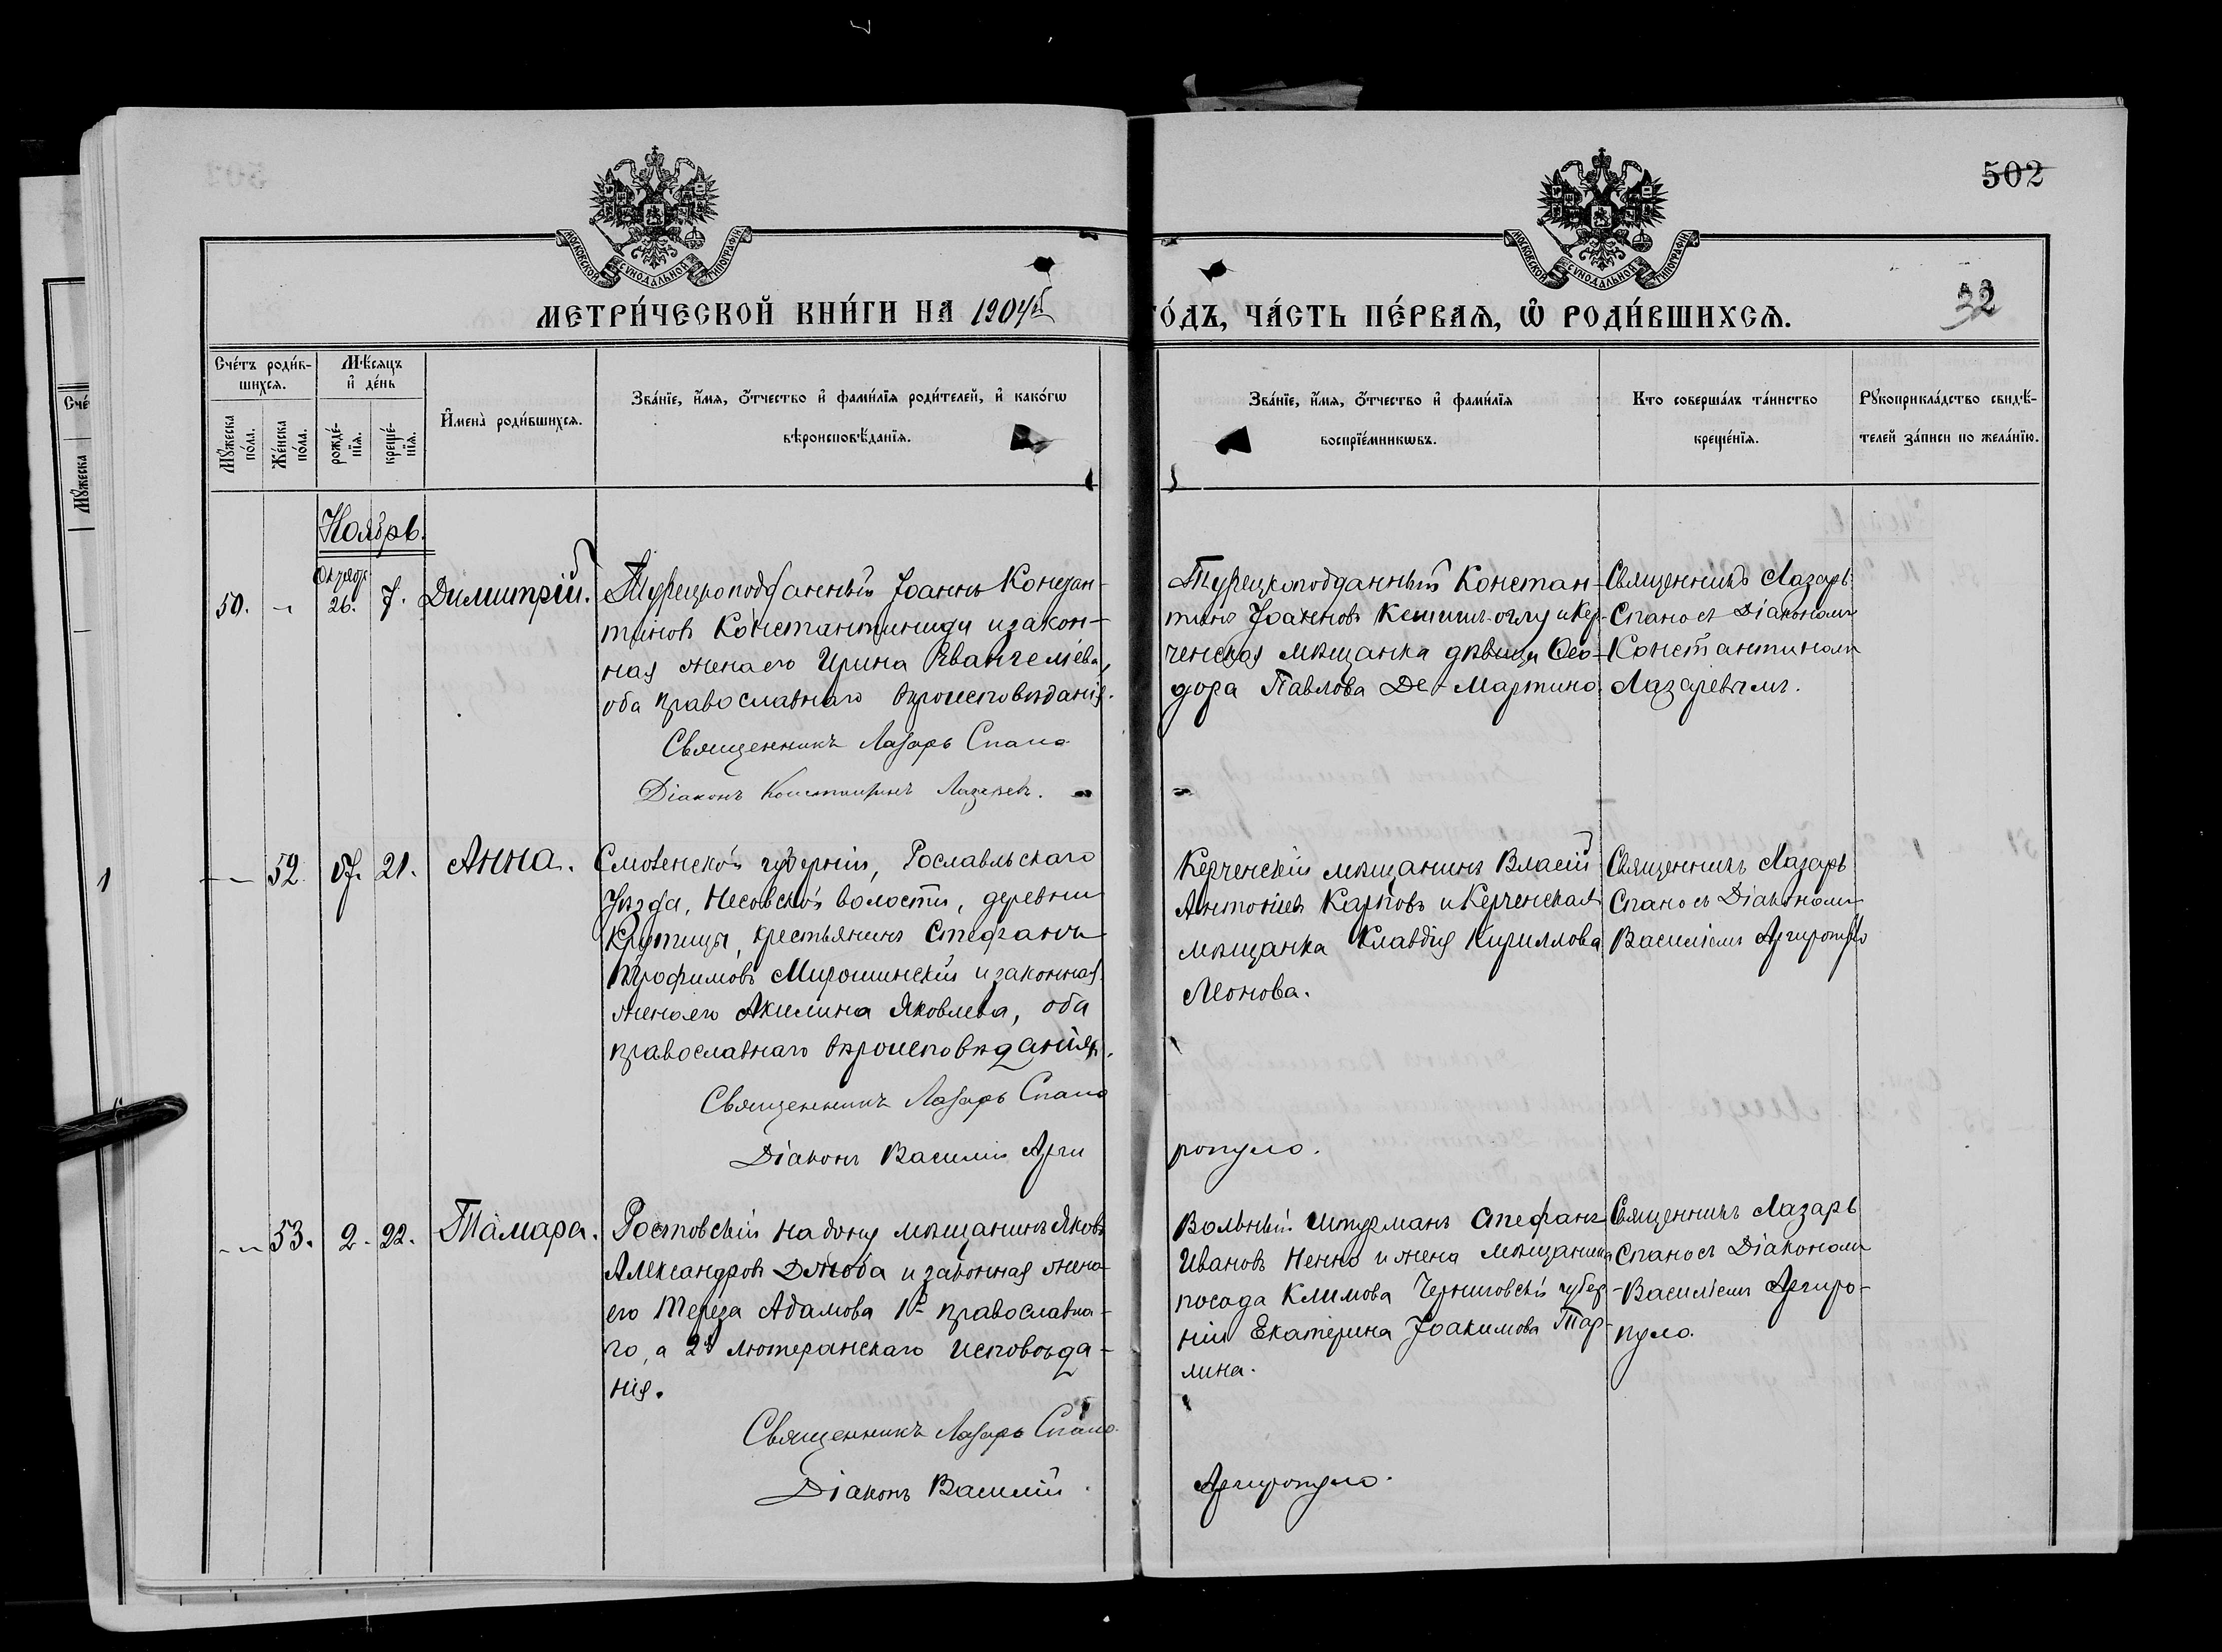 502
МОСКОВСКОЙ СѴНОДАЛЬНОЙ ТИПОГРАФІИ
МОСКОВСКОЙ СѴНОДАЛЬНОЙ ТИПОГРАФІИ
32
МЕТРИ́ЧЕСКОЙ КНИ́ГИ НА 1904й
ГО́ДЪ, ЧА́СТЬ ПЕ́РВАѦ, Ѡ҆ РОДИ́ВШИХСѦ.
Сче́тъ роди́в-
шихсѧ.
Мꙋ́жеска по́ла.
Же́нска по́ла.
Мѣ́сѧцъ
и҆ де́нь
рожде́-
нїѧ.
креще́-
нїѧ.
И҆мена̀ роди́вшихсѧ.
Зва́нїе, и҆́мѧ, ѻ҆́тчество и҆ фами́лїѧ роди́телей, и҆ како́гѡ
вѣроисповѣ́данїѧ.
Зва́нїе, и҆́мѧ, ѻ҆́тчество и҆ фами́лїѧ
воспрїе́мникѡвъ.
Кто соверша́лъ та́инство
креще́нїѧ.
Рꙋкоприкла́дство свидѣ́-
телей за́писи по жела́нїю.
Ноябрь.
50.
Октябр.
26.
7.
Димитрій.
Турецкоподданный Іоаннъ Констан-
тиновъ Константиниди и закон-
ная жена его Ирина Евангеліева,
оба православнаго вѣроисповѣданія.
Священникъ Лазарь Спано
Діаконъ Константинъ Лазаревъ.
Турецкоподданный Констан-
тинъ Іоанновъ Кешишъ-оглу и Кер-
ченская мѣщанка дѣвица Ѳео-
дора Павлова Де-Мартино.
Священникъ Лазарь
Спано съ Діакономъ
Константиномъ
Лазаревымъ.
52
21.
Анна.
Смоленской губерніи, Рославльскаго
Уѣзда, Несовской волости, деревни
Крутицы, крестьянинъ Стефанъ
Трофимовъ Мирошинскій и законная
жена его Акилина Яковлева, оба
православнаго вѣроисповѣданія.
Священникъ Лазарь Спано
Діаконъ Василій Арги
ропуло.
Керченскій мѣщанинъ Власій
Антоніевъ Карповъ и Керченская
мѣщанка Клавдія Кириллова
Леонова.
Священникъ Лазарь
Спано съ Діакономъ
Василіемъ Аргиропуло
53.
2.
22.
Тамара.
Ростовскій на дону мѣщанинъ Яковъ
Александровъ Дзюба и законная жена
его Тереза Адамова 1й православна-
го, а 2я лютеранскаго исповѣда-
нія.
Священникъ Лазарь Спано
Діаконъ Василій
Аргиропуло.
Вольный штурманъ Стефанъ
Ивановъ Ненно и жена мѣщанина
посада Климова Черниговской губер-
ніи Екатерина Іоакимова Тар-
лина.
Священникъ Лазарь
Спано съ Діакономъ
Василіемъ Аргиро-
пуло.